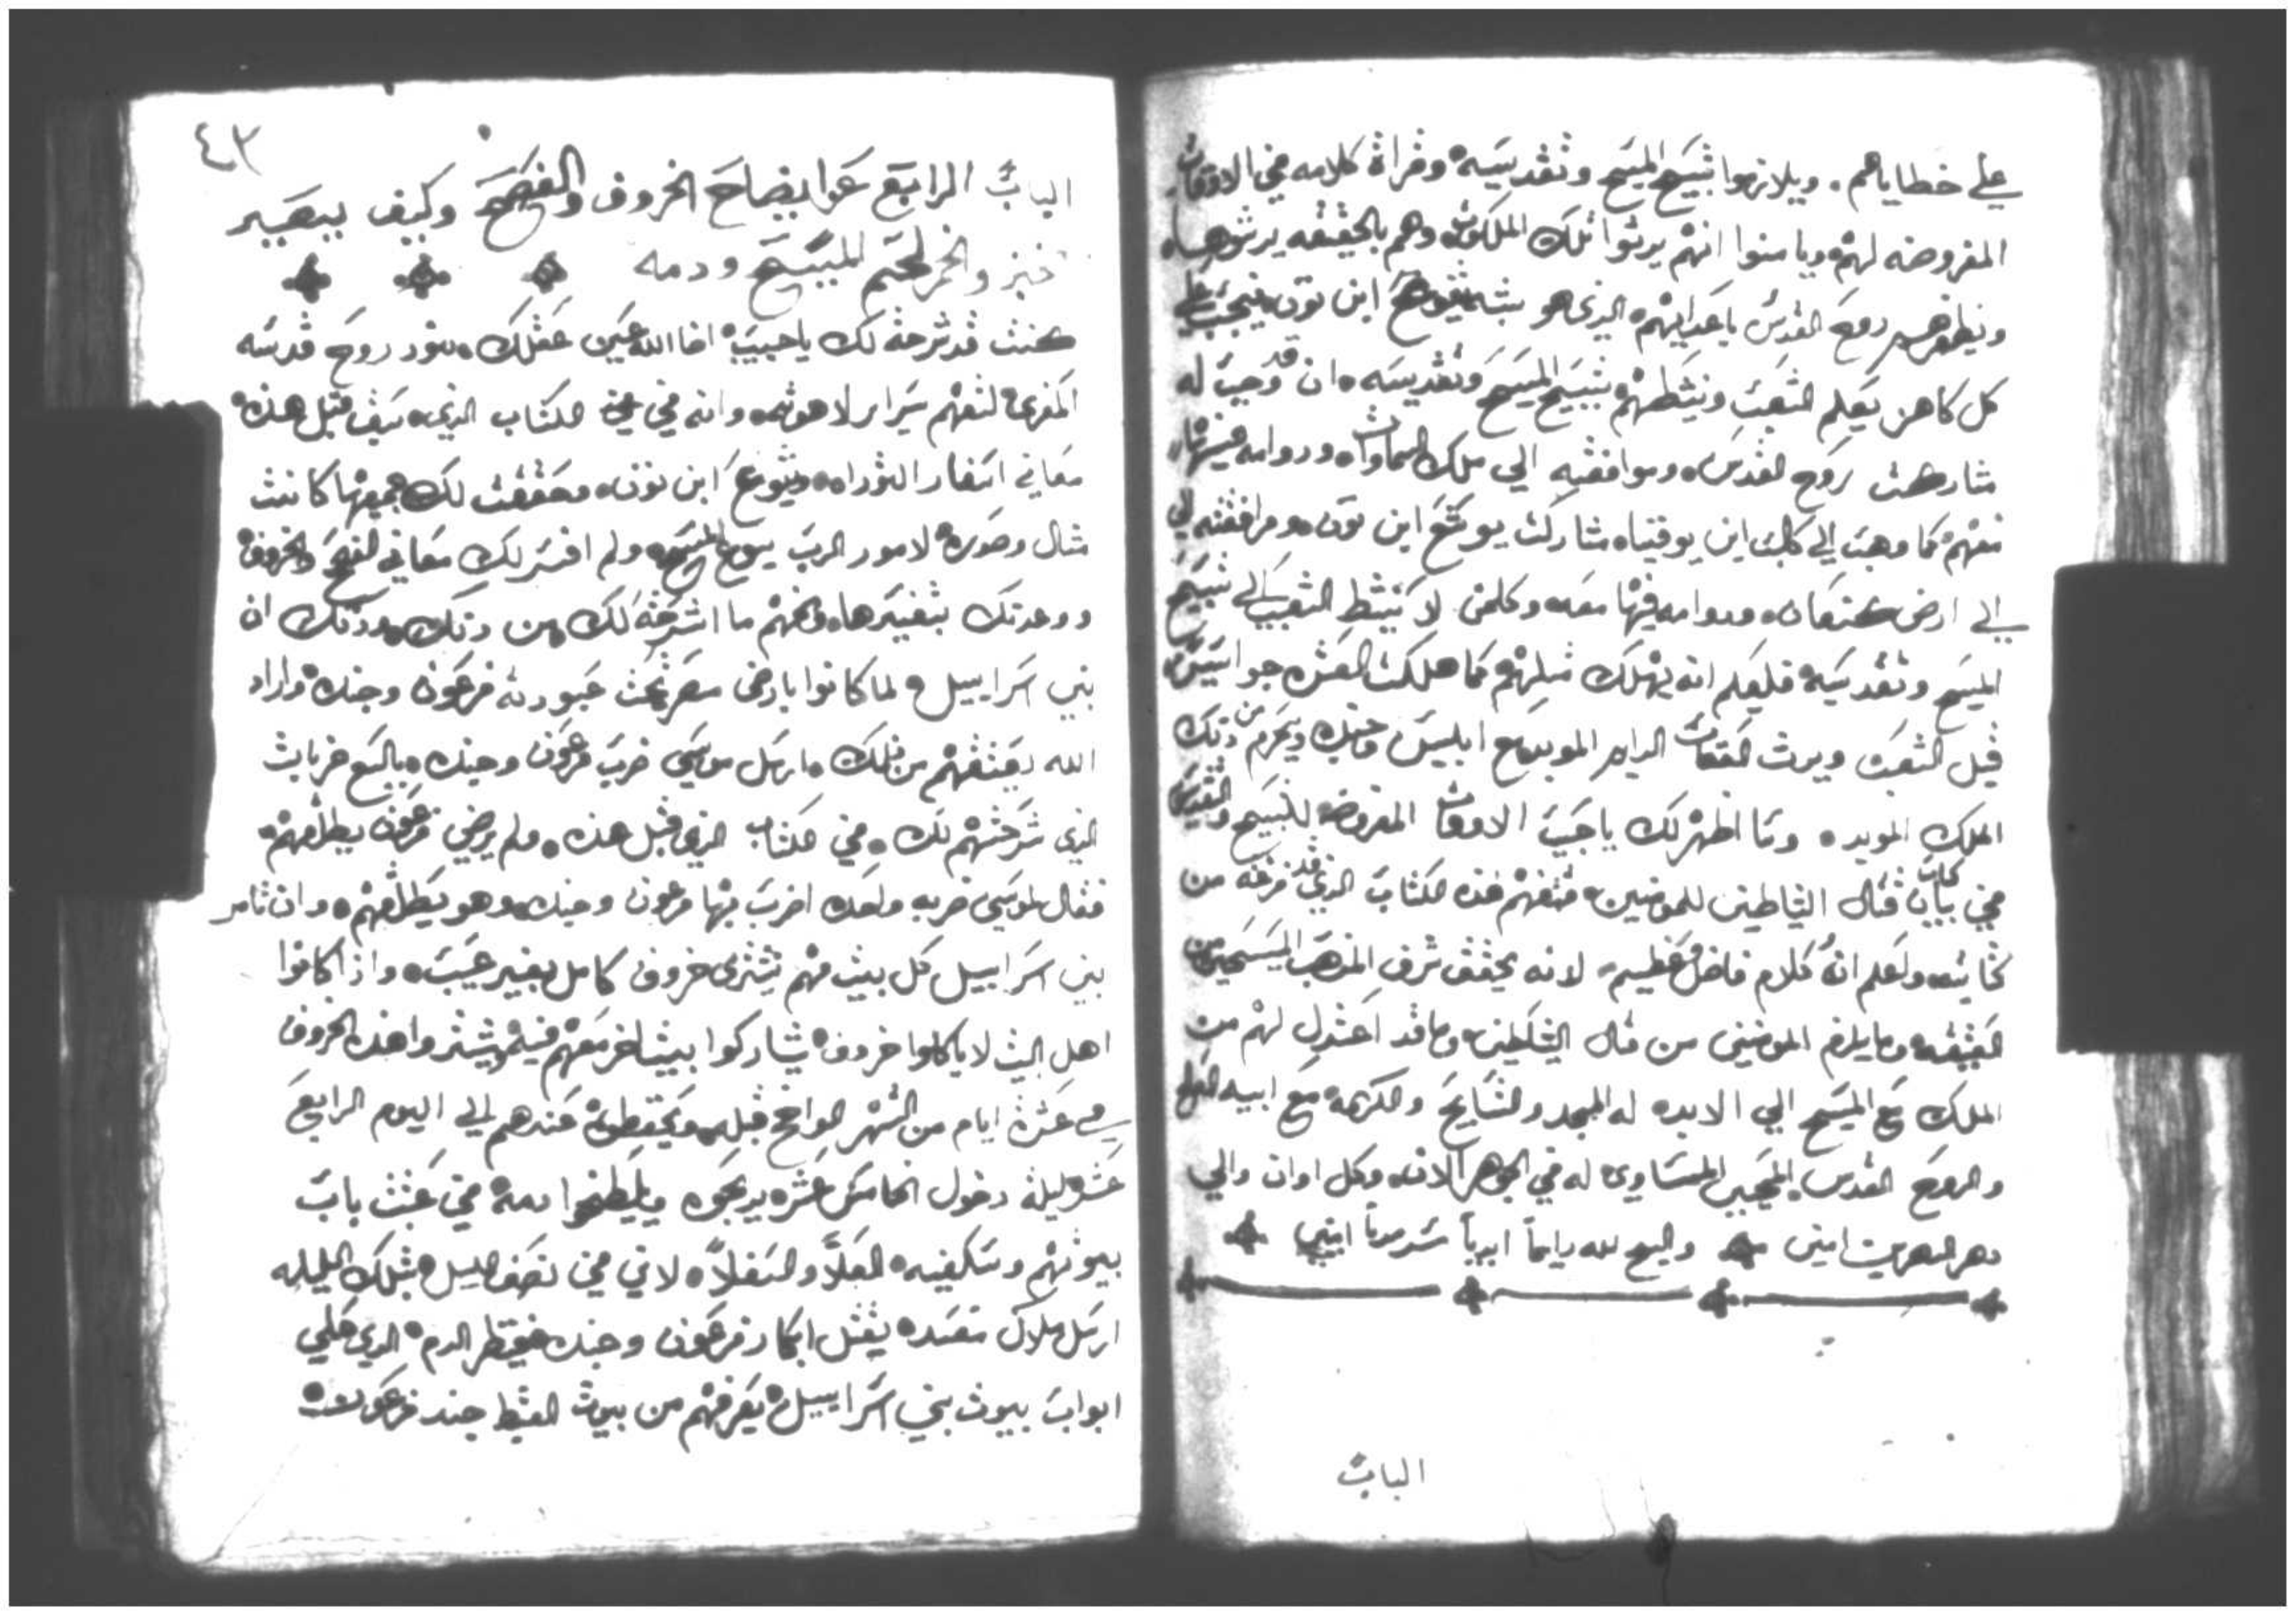 علي خطاياهم. ويلازموا تسبيح المسيح وتقديسه وقراة كلامه في الاوقات
المفروضه لهم ويامنوا انهم يرتوا تلك الملكوت وهم بالحقيقه يرتوها
ويظفرهم روح القدس باعدايهم الذي هو يشوع ابن نون فيجب علي
كل كاهن يعلم الشعب وينشطهم بتسبيح المسيح وتقديسه ان قد وجبت له
مشاركت روح القدس وموافقته الي ملك السماوات ودوامه فيها
معهم كما وهبت الي كالب ابن يوفنا مشاركت يوشع ابن نون ومرافقته لي
الي ارض كنعان ودوامه فيها معه وكلمن لا ينشط الشعب الي تسبيح
المسيح وتقديسه فليعلم انه يهلك متلهم كما هلكت العشره جواسيس
قبل الشعب ويرث العقاب الدايم الموبد مع ابليس وجنده ويحرم من دلك
الملك الموبده وما اظهر لك يا حبيب الاوقات المفروضه للتسبيح والتقديس
في كتاب بيان قتال الشياطين للمومنين فتفهم هذه الكتاب الذي قد فرغه من
كتابته ولعلم ان كلام فاضل وعظيم لانه يحقق شرف المذهب المسيحي من
العتيقه وما يلزم المومنين من قتال الشياطين وما قد اعتدل لهم من
الملك مع المسيح الي الابد له المجد والتسابيح والكرامه مع ابيه الصالح
والروح القدس المحيي المساوي له في الجوهر الان وكل اوان والي
دهر الدهرين امين والسبح لله دايماً ابدياً سرمدياً امين
الباب
٤٣
الباب الرابع عوا يضاح الخروف والفصح وكيف يصير
خبز والخمر لحم المسيح ودمه
كنت قد شرحة لك يا حبيب اضا الله عين عقلك بنور روح قدسه
المغزي لتفهم سراير لاهوته وانه في الكتاب الذي سبق قبل هذه
معاني اسفار التوراه ويشوع ابن نون وحققت لك جميعها كانت
مثال وصوره لامور الرب يسوع المسيح ولم افسر لك معاني الفصح والخروف
ووعدتك بتفسيرها وافهم ما اشرحه لك من دلك ودلك ان
بني اسراييل لما كانوا بارض مصر تحت عبودية فرعون وجنده واراد
الله يعتقهم من تلك وارسل موسي ضرب فرعون وجنده بالتسع ضربات
الذي شرحتهم لك في الكتاب الذي قبل هذه ولم يرضي فرعون يطلقهم
فقال لموسي ضربه واحده اضرب بها فرعون وجنده وهو يطلقهم وان تامر
بني اسراييل كل بيت منهم يشتري خروف كامل بغير عيب واذا كانوا
اهل البيت لا ياكلوا خروف يشاركوا بيت اخر معهم فيه ويشتروا هذه الخروف
في عشرة ايام من الشهر الواضح قبله ويحتفظوه عندهم الي اليوم الرابع
عشر ليلة دخول الخامس عشر يدبحوه ويلطخوا دمه في عتبت باب
بيوتهم وسكفيته العلا والسفلا لاني في نصف الليل بتلك الليله
ارسل ملاك مفسده يقتل ابكار فرعون وجنده فينظر الدم الذي علي
ابواب بيوت بني اسراييل يعرفهم من بيوت القبط جند فرعون